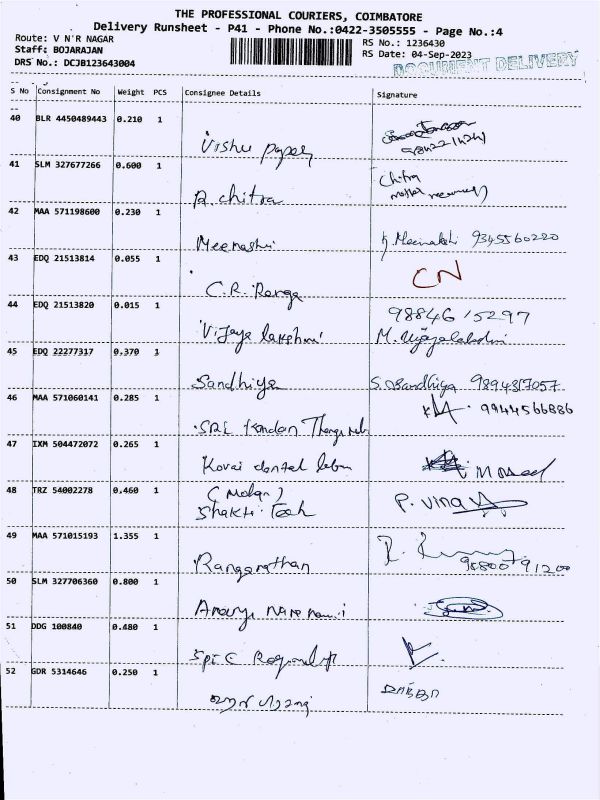 THE PROFESSIONAL COURIERS, COIMBATORE
Delivery Runsheet - P41 - Phone No.:0422-3505555 - Page No.:4
Route: V N'R NAGAR
Staff: BOJARAJAN
DRS No.: DCJB123643004
RS No.: 1236430
RS Date: 04-Sep-2023
DOCUMENT DELIVERY
S No Consignment No Weight PCS Consignee Details Signature
40 BLR 4450489443 0.210 1
Vishu paper
41 SLM 327677266 0.600 1
R. chitra Chitra
42 MAA 571198600 0.230 1
Meenashi 9345560220
43 EDQ 21513814 0.055 1
C.R. Ranga CN
44 EDQ 21513820 0.015 1
Vijaya lakshmi 98846 15297
M. Vijayalakshmi
45 EDQ 22277317 0.370 1
Sandhiya S. Sandhiya 9894317057
46 MAA 571060141 0.285 1
SRI Kandan 9944566886
47 IXM 504472072 0.265 1
Kovai dental
48 TRZ 54002278 0.460 1
(Mohan)
Shakti Tech P. Vinay
49 MAA 571015193 1.355 1
Ranganathan
50 SLM 327706360 0.800 1
51 DDG 100840 0.480 1
52 GDR 5314646 0.250 1